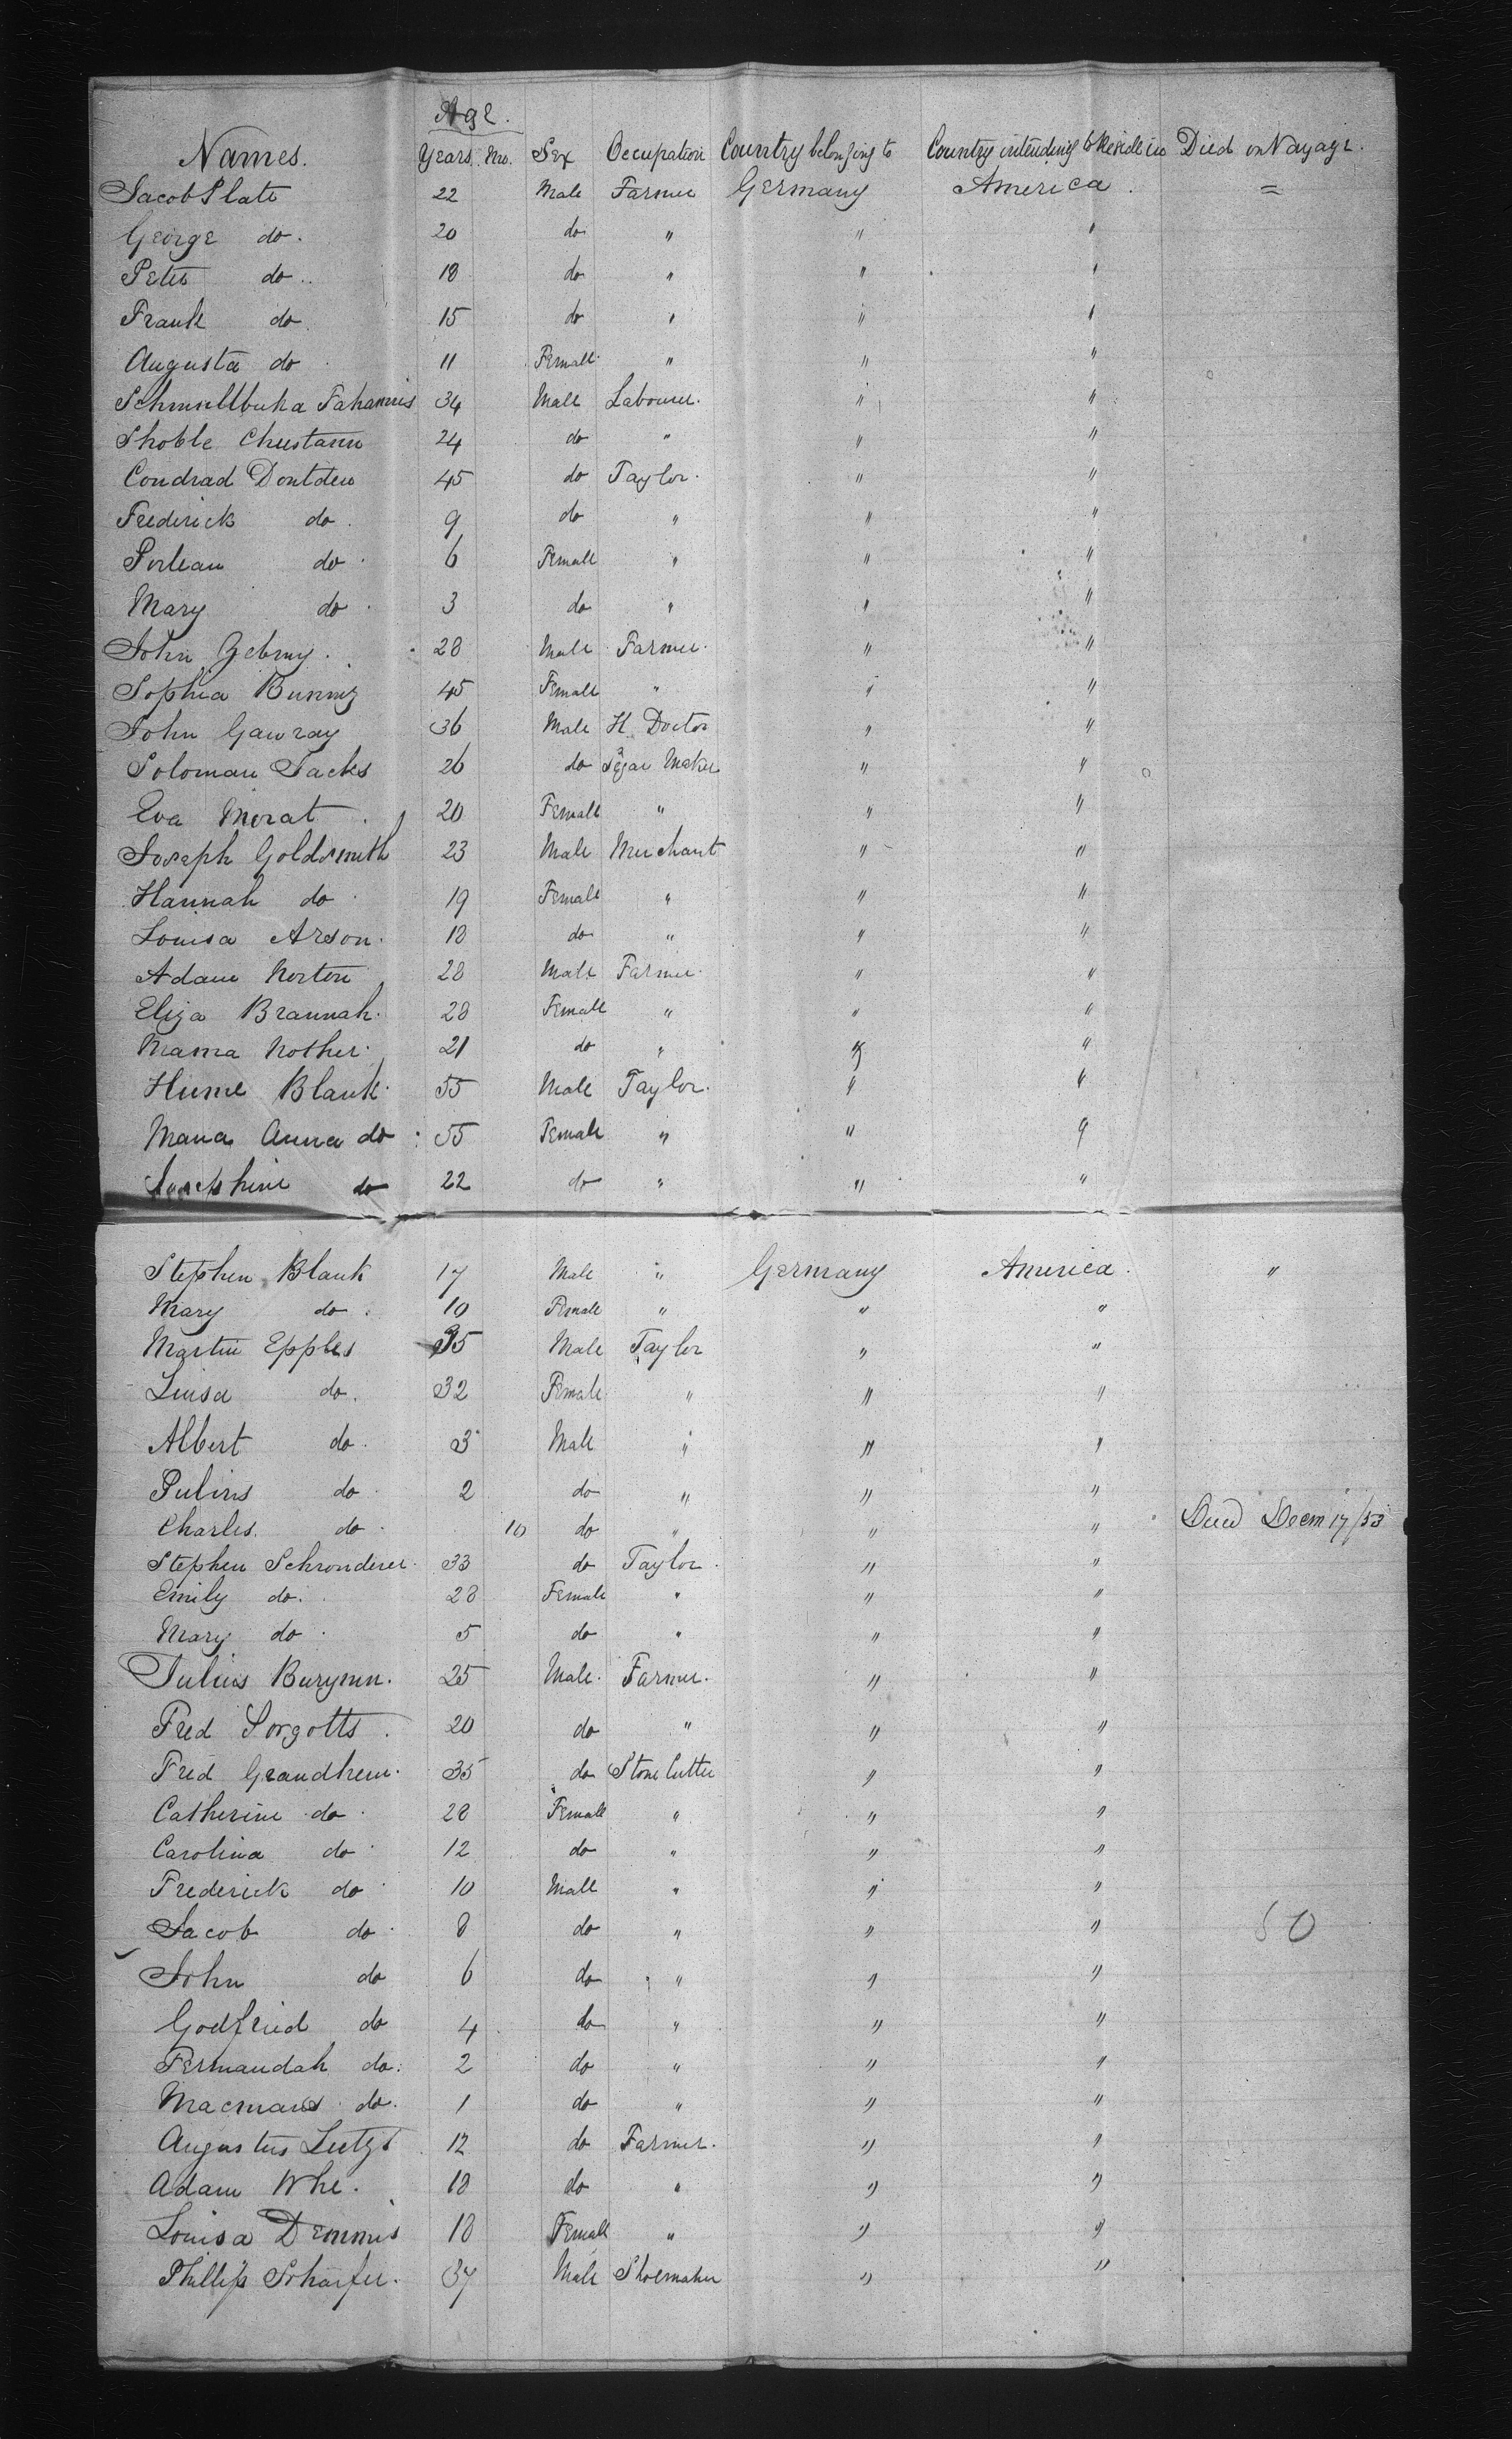 Age.
Names. Years. Mo. Sex Occupation Country belonging to Country intending to Reside in Died on Voyage.
Jacob Plate 22 Male Farmer Germany America. =
George do. 20 do " " "
Peter do.. 18 do " " "
Frank do. 15 do " " "
Augusta do 11 Female " " "
34 Male Labourer. " "
24 do " " "
Condrad 45 do Taylor. " "
Frederick do. 9 do " " "
do. 6 Female " " "
Mary do. 3 do " " "
John 28 Male Farmer. " "
Sophia 45 Female " " "
John Gawray 36 Male H. Doctor " "
Soloman Sacks 26 do Segar Maker " "
Eva Morat. 20 Female " " "
Joseph Goldsmith 23 Male Merchant " "
Hannah do. 19 Female " " "
Louisa Arson. 18 do " " "
Adam Norton 28 Male Farmer. " "
Eliza Brannah. 28 Female " " "
Mama Nother. 21 do " " "
Hume Blank. 55 Male Taylor. " "
Maria Anna do. 55 Female " " "
Josephine do 22 do " " "
Stephen Blank 17 Male " Germany America. "
Mary do. 10 Female " " "
Martin Epples 35 Male Taylor " "
Luisa do. 32 Female " " "
Albert do. 3 Male " " "
Julius do. 2 do " " "
Charles. do. 10 do " " " Died Decm 17/53
Stephen Schronderer. 33 do Taylor. " "
Emily do. 28 Female " " "
Mary do. 5 do " " "
Julius Burymn. 25 Male. Farmer. " "
Fred Sorgotts. 20 do " " "
Fred Grandhem. 35 do Stone Cutter " "
Catherine do. 28 Female " " "
Carolina do. 12 do " " "
Frederick do. 10 Male " " "
Jacob do. 8 do " " " 50
John do 6 do " " "
Godfried do 4 do " " "
Fermandah do. 2 do " " "
Macmans do. 1 do " " "
Augustus Lutzt 12 do Farmer. " "
Adam Whe. 18 do " " "
Louisa Demmis 18 Female " " "
Phillip Scharfer. 37 Male Shoemaker " "